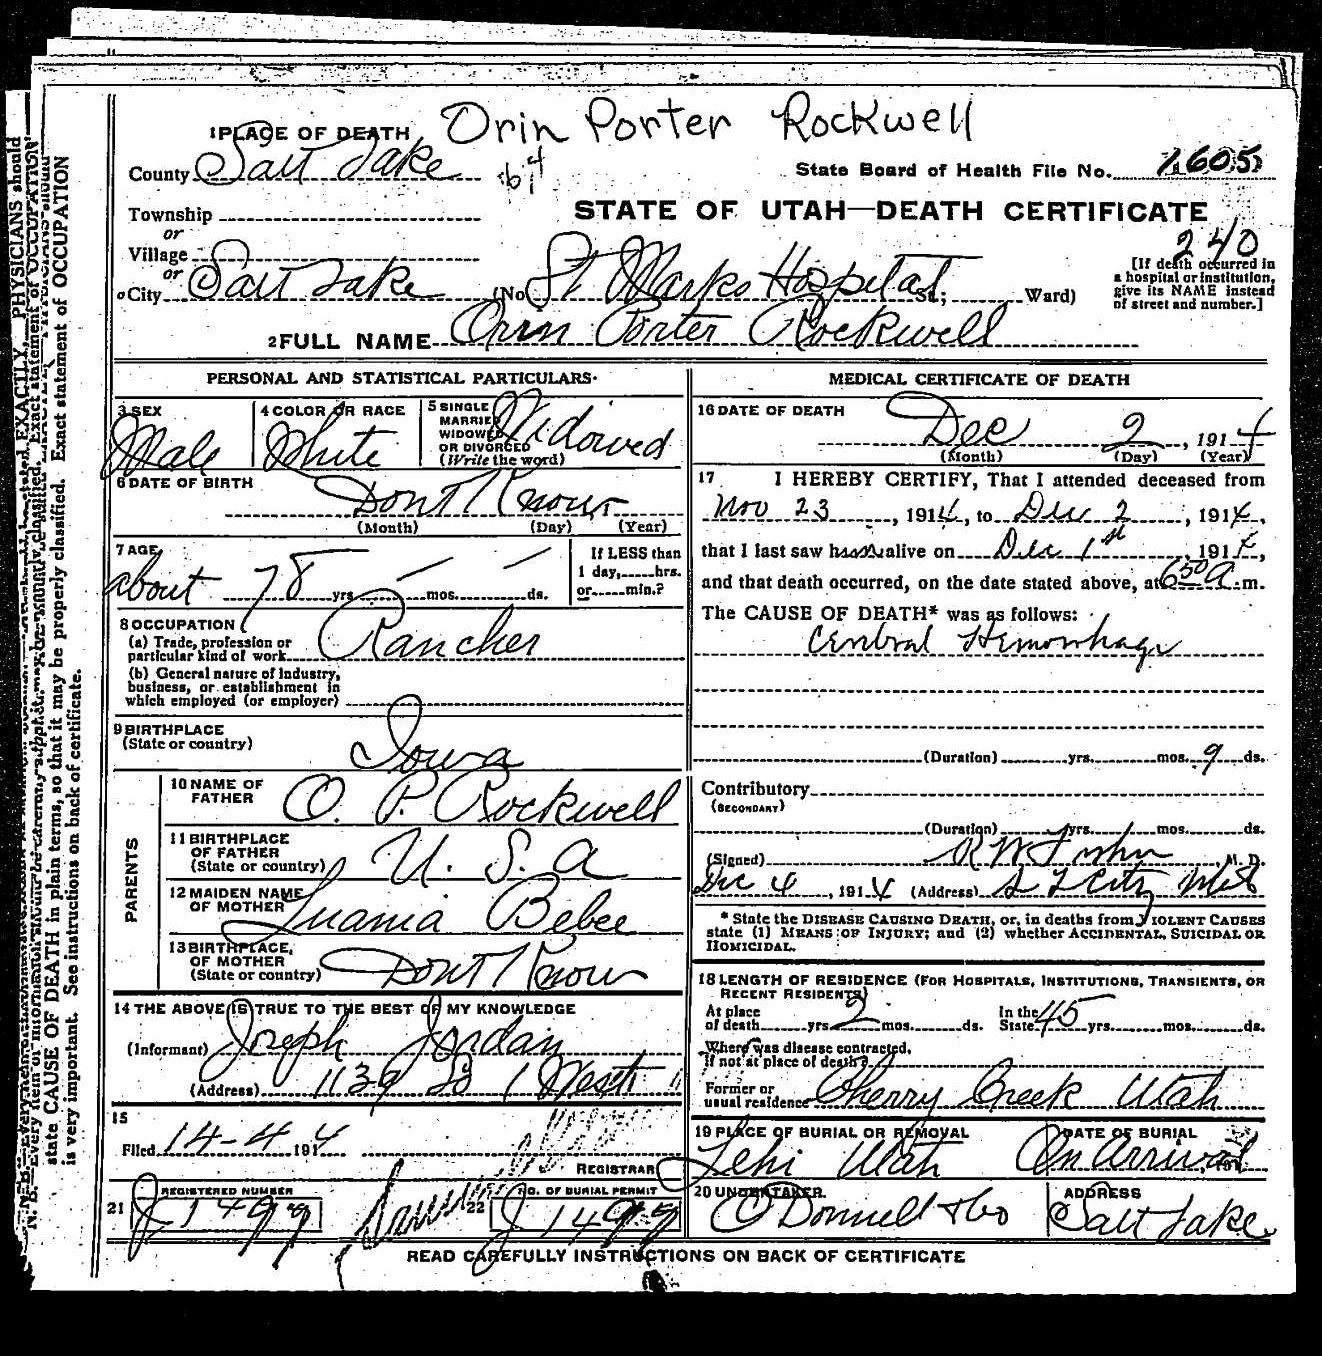 Orin Porter Rockwell
1 PLACE OF DEATH
County Salt Lake
State Board of Health File No. 1605
Township
STATE OF UTAH—DEATH CERTIFICATE
or
Village
240
or
City Salt Lake (No. St Marks Hospital St.; Ward)
[If death occurred in
a hospital or institution,
give its NAME instead
of street and number.]
2 FULL NAME Orrin Porter Rockwell
PERSONAL AND STATISTICAL PARTICULARS
3 SEX
Male
4 COLOR OR RACE
White
5 SINGLE
MARRIED
WIDOWED
OR DIVORCED
(Write the word)
Widowed
6 DATE OF BIRTH
Dont Know
(Month) (Day) (Year)
7 AGE
about 78 yrs. — mos. — ds.
If LESS than
1 day, hrs.
or min.?
8 OCCUPATION
(a) Trade, profession or
particular kind of work Rancher
(b) General nature of Industry,
business, or establishment in
which employed (or employer)
9 BIRTHPLACE
(State or country)
Iowa
PARENTS
10 NAME OF
FATHER
O. P. Rockwell
11 BIRTHPLACE
OF FATHER
(State or country)
U. S. A
12 MAIDEN NAME
OF MOTHER
Luania Bebee
13 BIRTHPLACE,
OF MOTHER
(State or country)
Dont Know
14 THE ABOVE IS TRUE TO THE BEST OF MY KNOWLEDGE
(Informant) Joseph Jordan
(Address) 1139 So 1 West
15
Filed 14-4 1914
REGISTRAR
21 REGISTERED NUMBER
J 1499
22 NO. OF BURIAL PERMIT
J 1499
MEDICAL CERTIFICATE OF DEATH
16 DATE OF DEATH
Dec 2, 1914
(Month) (Day) (Year)
17 I HEREBY CERTIFY, That I attended deceased from
Nov 23, 1914, to Dec 2, 1914,
that I last saw him alive on Dec 1st, 1914,
and that death occurred, on the date stated above, at 6 50 a.m.
The CAUSE OF DEATH* was as follows:
Cerebral Hemorrhage
(Duration) yrs. mos. 9 ds.
Contributory
(SECONDARY)
(Duration) yrs. mos. ds.
(Signed) R W, M. D.
Dec 4, 1914 (Address) S L City
* State the DISEASE CAUSING DEATH, or, in deaths from VIOLENT CAUSES
state (1) MEANS OF INJURY; and (2) whether ACCIDENTAL, SUICIDAL OR
HOMICIDAL.
18 LENGTH OF RESIDENCE (FOR HOSPITALS, INSTITUTIONS, TRANSIENTS, OR
RECENT RESIDENTS)
At place
of death yrs. 2 mos. ds.
In the
State 45 yrs. mos. ds.
Where was disease contracted,
If not at place of death?
Former or
usual residence Cherry Creek Utah
19 PLACE OF BURIAL OR REMOVAL
Lehi Utah
DATE OF BURIAL
On Arrival, 191
20 UNDERTAKER
O Donnell & Co
ADDRESS
Salt Lake
READ CAREFULLY INSTRUCTIONS ON BACK OF CERTIFICATE
PHYSICIANS should
state CAUSE OF DEATH in plain terms, so that it may be properly classified. Exact statement of OCCUPATION
is very important. See instructions on back of certificate.